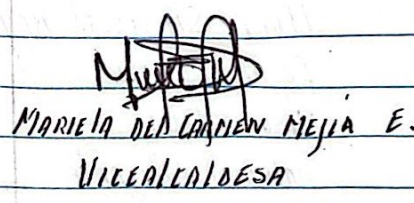 MARIELA DEL CARMEN MEJIA E.
VICEALCALDESA